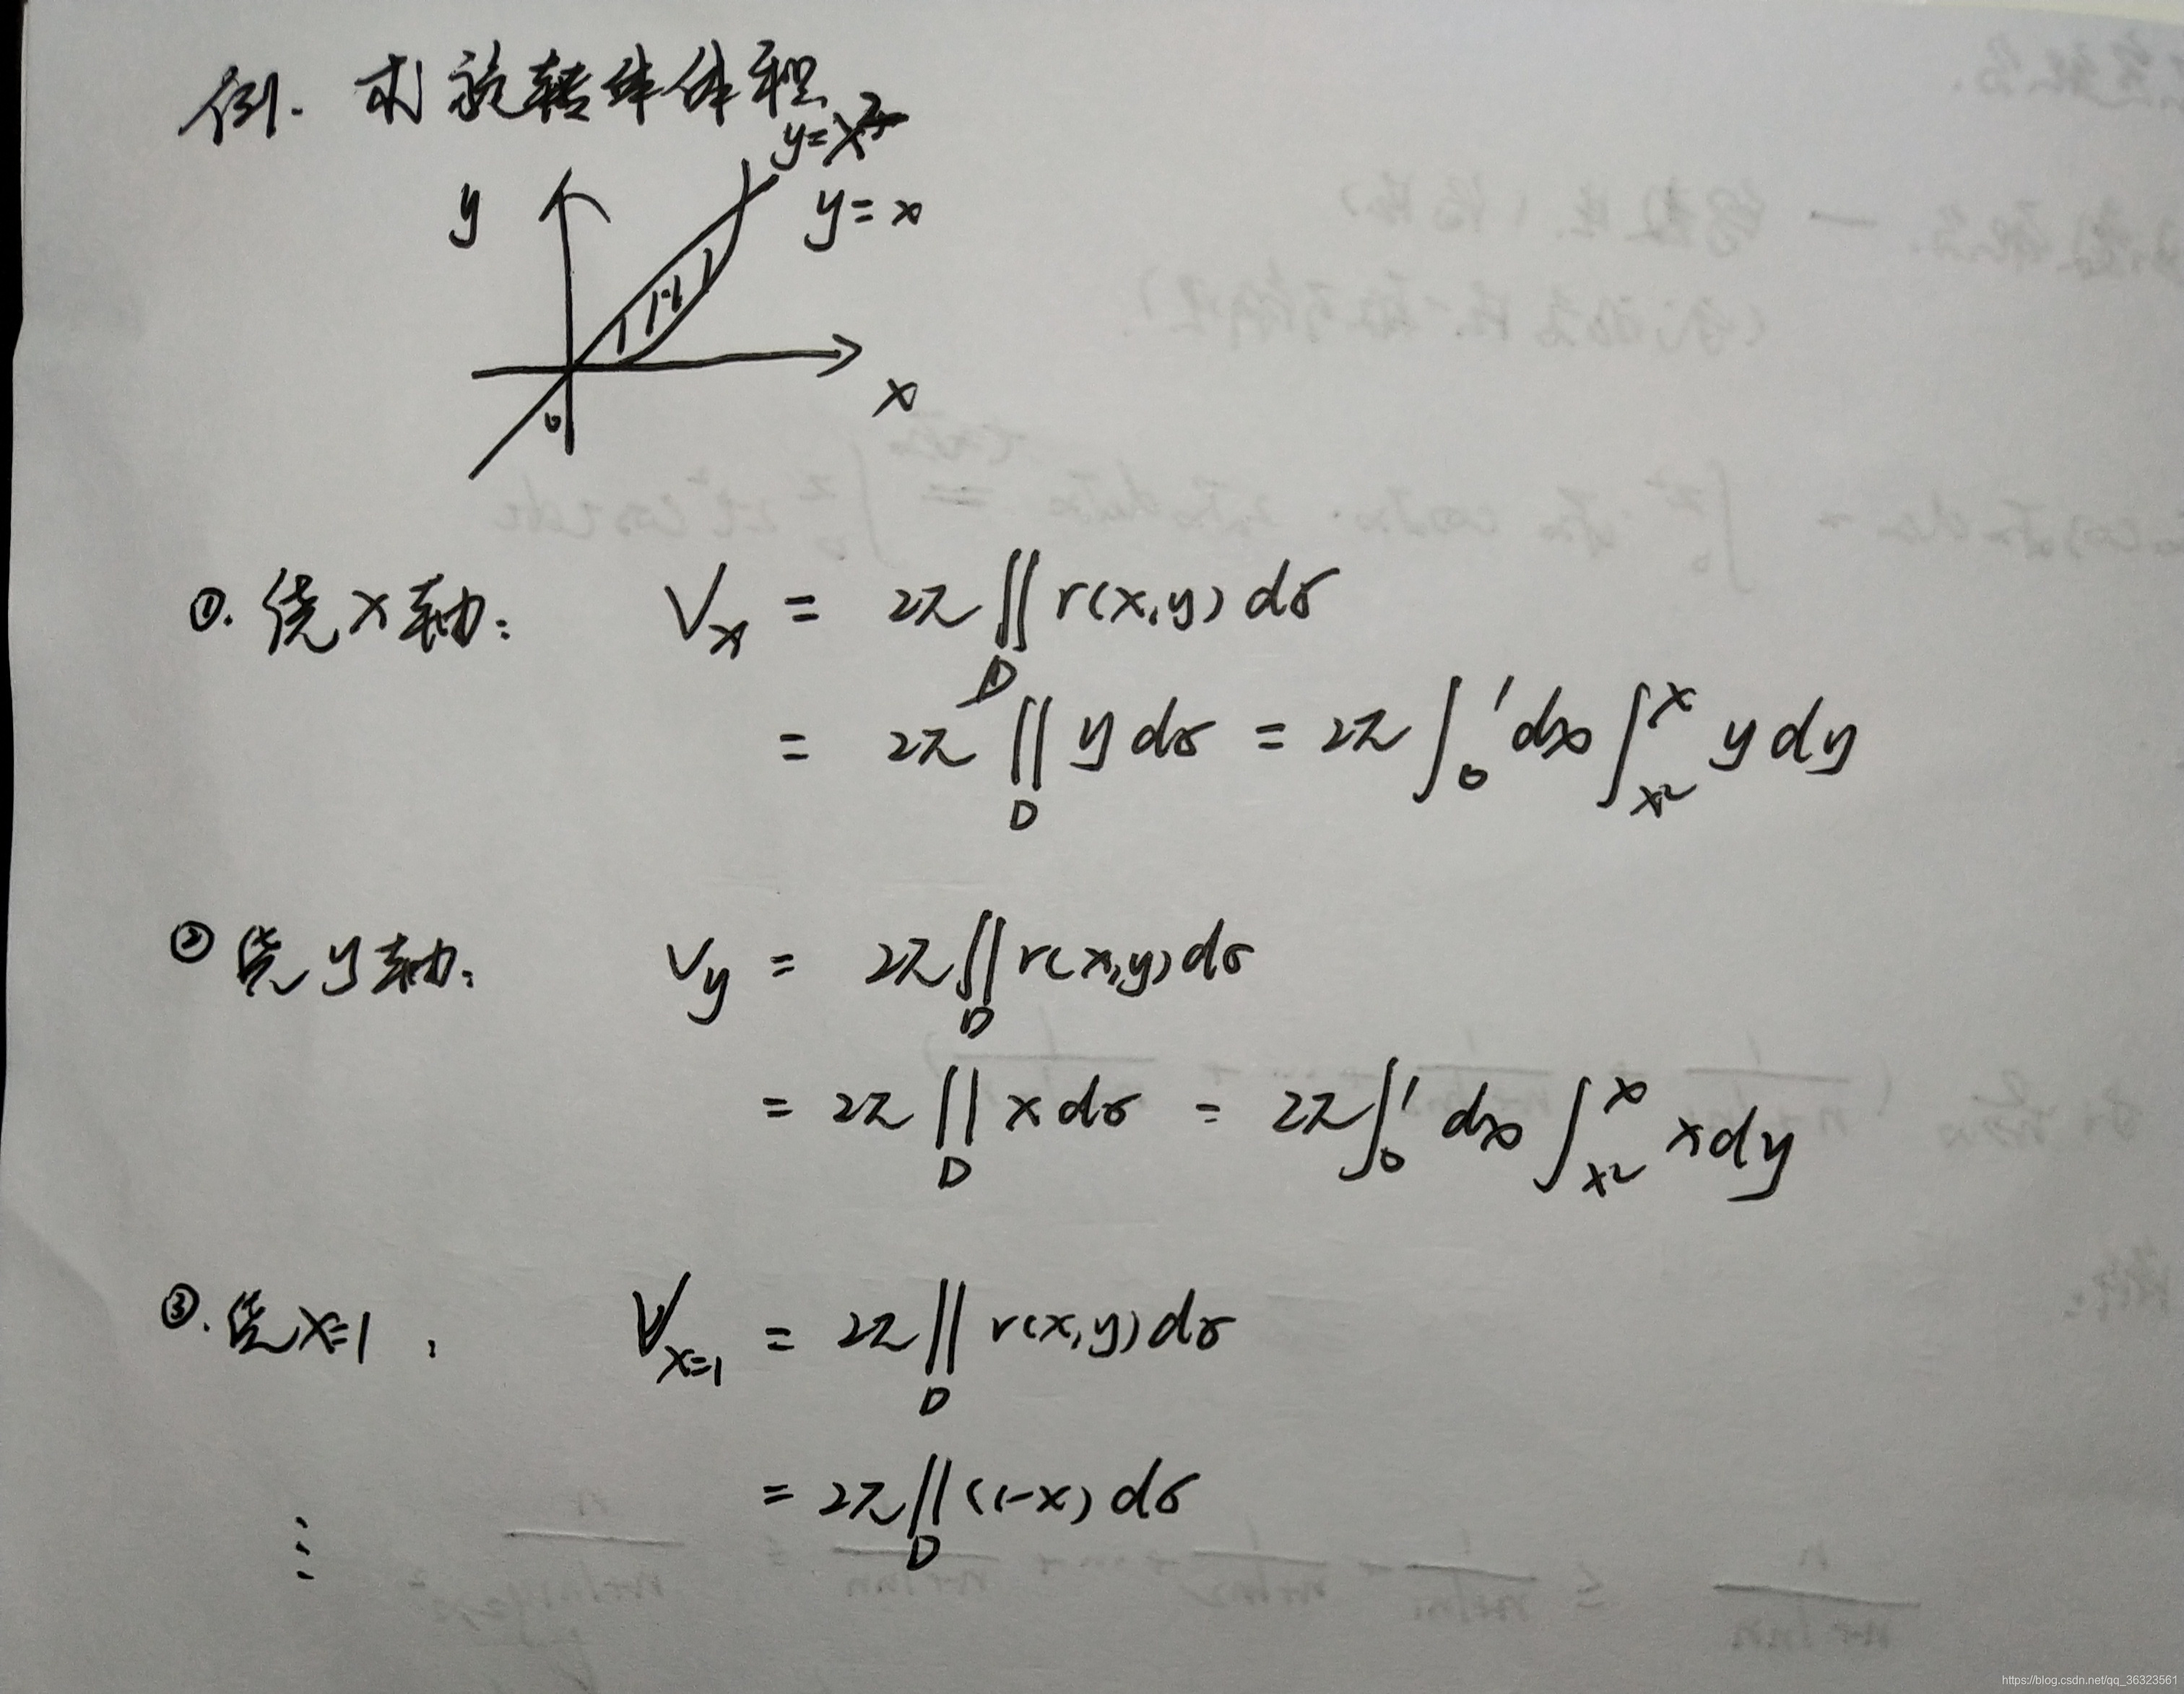 例. 求旋转体体积
y=x²
y
y=x
x
0
①. 绕x轴: Vx = 2π∬D r(x,y)dσ
= 2π∬D y dσ = 2π∫₀¹dx∫x²ˣ y dy
② 绕y轴: Vy = 2π∬D r(x,y)dσ
= 2π∬D x dσ = 2π∫₀¹dx∫x²ˣ x dy
③. 绕x=1: Vx=1 = 2π∬D r(x,y)dσ
= 2π∬D (1-x)dσ
⋮
https://blog.csdn.net/qq_36323561